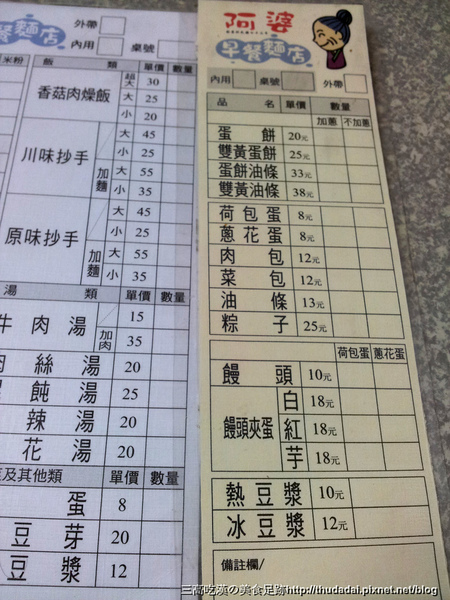 外帶
早餐麵店
內用 桌號
米粉 飯 類 單價 數量
香菇肉燥飯 超大 30
大 25
小 20
川味抄手 大 45
小 25
加麵 大 55
小 35
原味抄手 大 45
小 25
加麵 大 55
小 35
湯 類 單價 數量
牛肉湯 15
加肉 35
肉絲湯 20
餛飩湯 25
辣湯 20
花湯 20
及其他類 單價 數量
蛋 8
豆芽 20
豆漿 12
阿婆
早餐麵店
內用 桌號 外帶
品 名 單價 數量
加蔥 不加蔥
蛋餅 20元
雙黃蛋餅 25元
蛋餅油條 33元
雙黃油條 38元
荷包蛋 8元
蔥花蛋 8元
肉包 12元
菜包 12元
油條 13元
粽子 25元
荷包蛋 蔥花蛋
饅頭 10元
饅頭夾蛋 白 18元
紅 18元
芋 18元
熱豆漿 10元
冰豆漿 12元
備註欄/
三高吃漢の美食足跡http://thudadai.pixnet.net/blog